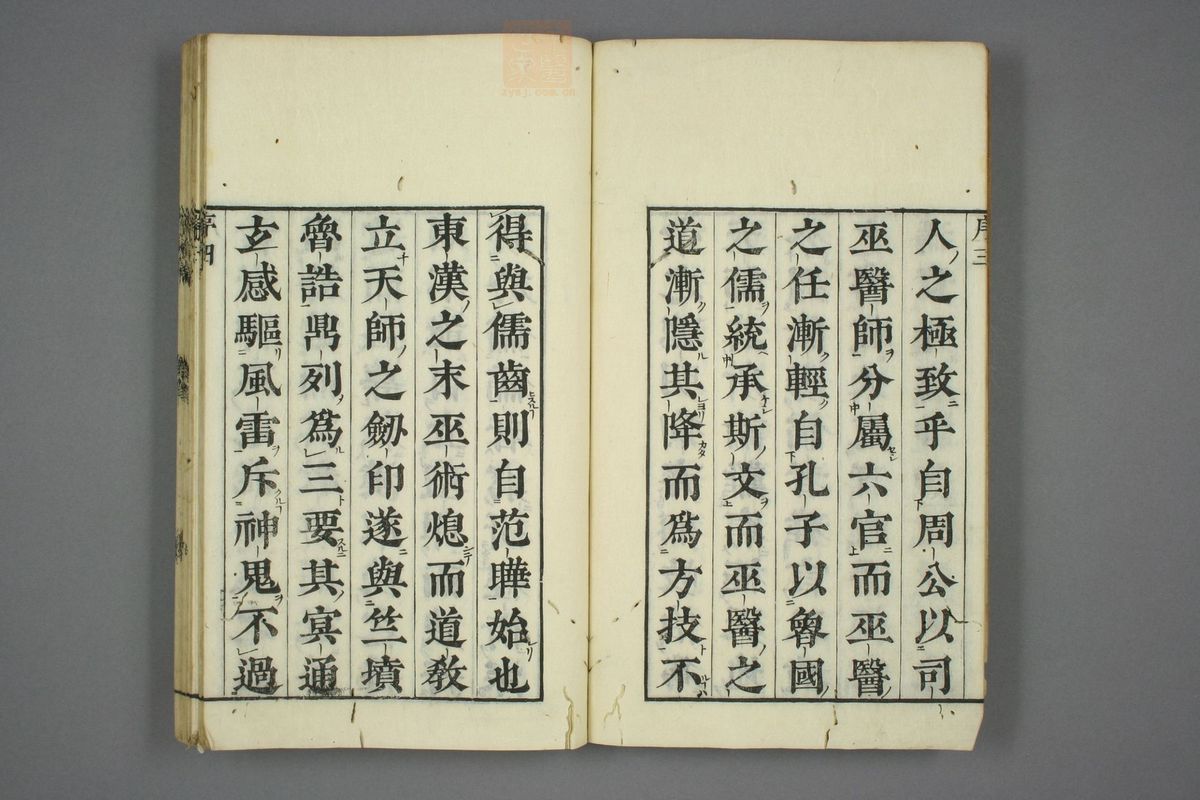 序三
人之極致乎自周公以司
巫醫師分屬六官而巫醫
之任漸輕自孔子以魯國
之儒統承斯文而巫醫之
道漸隱其降而爲方技不
得與儒齒則自范曄始也
東漢之末巫術熄而道敎
立天師之劒印遂與竺墳
魯誥鼎列爲三要其冥通
玄感驅風雷斥神鬼不過
序四
zysj.com.cn